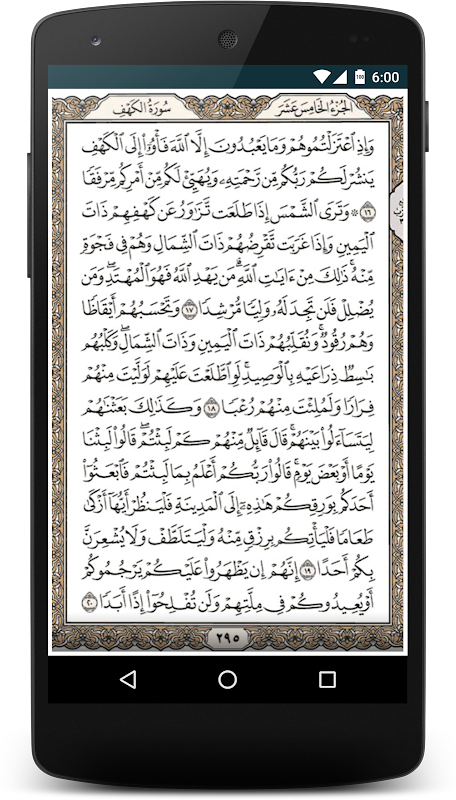 6:00
الجزء الخامس عشر
سورة الكهف
وَإِذِ ٱعْتَزَلْتُمُوهُمْ وَمَا يَعْبُدُونَ إِلَّا ٱللَّهَ فَأْوُۥٓا۟ إِلَى ٱلْكَهْفِ
يَنشُرْ لَكُمْ رَبُّكُم مِّن رَّحْمَتِهِۦ وَيُهَيِّئْ لَكُم مِّنْ أَمْرِكُم مِّرْفَقًا
١٦ ۞ وَتَرَى ٱلشَّمْسَ إِذَا طَلَعَت تَّزَٰوَرُ عَن كَهْفِهِمْ ذَاتَ
ٱلْيَمِينِ وَإِذَا غَرَبَت تَّقْرِضُهُمْ ذَاتَ ٱلشِّمَالِ وَهُمْ فِى فَجْوَةٍ
مِّنْهُ ۚ ذَٰلِكَ مِنْ ءَايَٰتِ ٱللَّهِ ۗ مَن يَهْدِ ٱللَّهُ فَهُوَ ٱلْمُهْتَدِ ۖ وَمَن
يُضْلِلْ فَلَن تَجِدَ لَهُۥ وَلِيًّا مُّرْشِدًا ١٧ وَتَحْسَبُهُمْ أَيْقَاظًا
وَهُمْ رُقُودٌ ۚ وَنُقَلِّبُهُمْ ذَاتَ ٱلْيَمِينِ وَذَاتَ ٱلشِّمَالِ ۖ وَكَلْبُهُم
بَٰسِطٌ ذِرَاعَيْهِ بِٱلْوَصِيدِ ۚ لَوِ ٱطَّلَعْتَ عَلَيْهِمْ لَوَلَّيْتَ مِنْهُمْ
فِرَارًا وَلَمُلِئْتَ مِنْهُمْ رُعْبًا ١٨ وَكَذَٰلِكَ بَعَثْنَٰهُمْ
لِيَتَسَآءَلُوا۟ بَيْنَهُمْ ۚ قَالَ قَآئِلٌ مِّنْهُمْ كَمْ لَبِثْتُمْ ۖ قَالُوا۟ لَبِثْنَا
يَوْمًا أَوْ بَعْضَ يَوْمٍ ۚ قَالُوا۟ رَبُّكُمْ أَعْلَمُ بِمَا لَبِثْتُمْ فَٱبْعَثُوٓا۟
أَحَدَكُم بِوَرِقِكُمْ هَٰذِهِۦٓ إِلَى ٱلْمَدِينَةِ فَلْيَنظُرْ أَيُّهَآ أَزْكَىٰ
طَعَامًا فَلْيَأْتِكُم بِرِزْقٍ مِّنْهُ وَلْيَتَلَطَّفْ وَلَا يُشْعِرَنَّ
بِكُمْ أَحَدًا ١٩ إِنَّهُمْ إِن يَظْهَرُوا۟ عَلَيْكُمْ يَرْجُمُوكُمْ
أَوْ يُعِيدُوكُمْ فِى مِلَّتِهِمْ وَلَن تُفْلِحُوٓا۟ إِذًا أَبَدًا ٢٠
٢٩٥